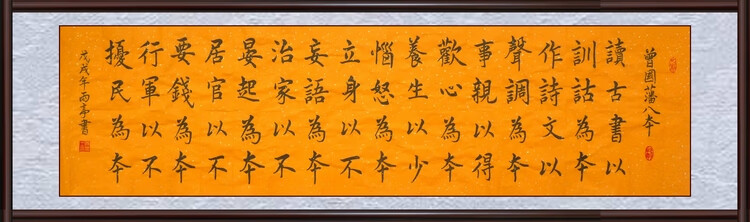 曾國藩八本
讀古書以
訓詁為本
作詩文以
聲調為本
事親以得
歡心為本
養生以少
惱怒為本
立身以不
妄語為本
治家以不
晏起為本
居官以不
要錢為本
行軍以不
擾民為本
戊戌年雨亭書